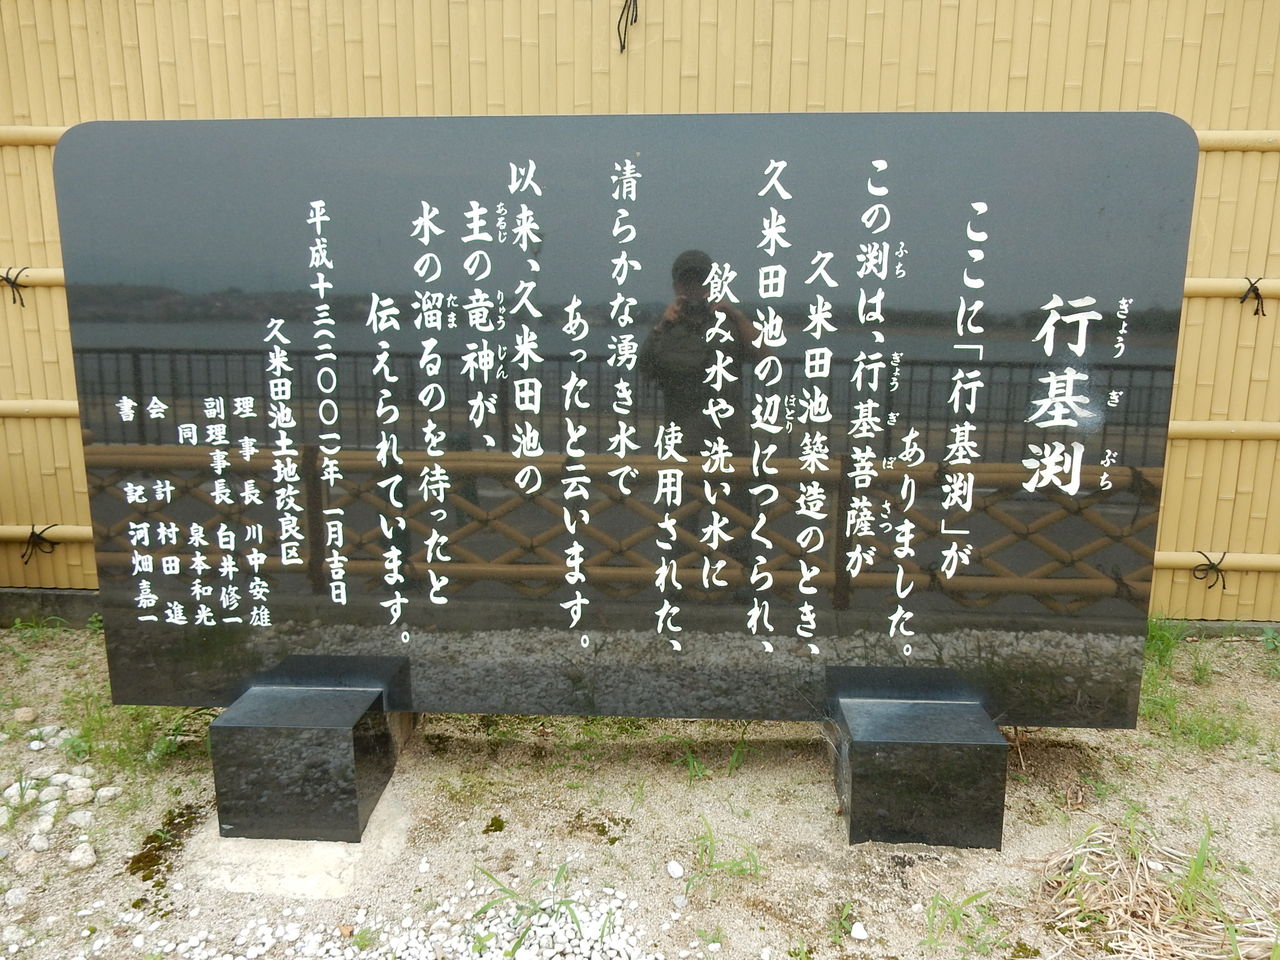 行基渕
ここに「行基渕」が
ありました。
この渕は、行基菩薩が
久米田池築造のとき、
久米田池の辺につくられ、
飲み水や洗い水に
使用された、
清らかな湧き水で
あったと云います。
以来、久米田池の
主の竜神が、
水の溜るのを待ったと
伝えられています。
平成十三(二〇〇一)年 一月吉日
久米田池土地改良区
理事長 川中安雄
副理事長 白井修一
同 泉本和光
会計 村田進
書記 河畑嘉一